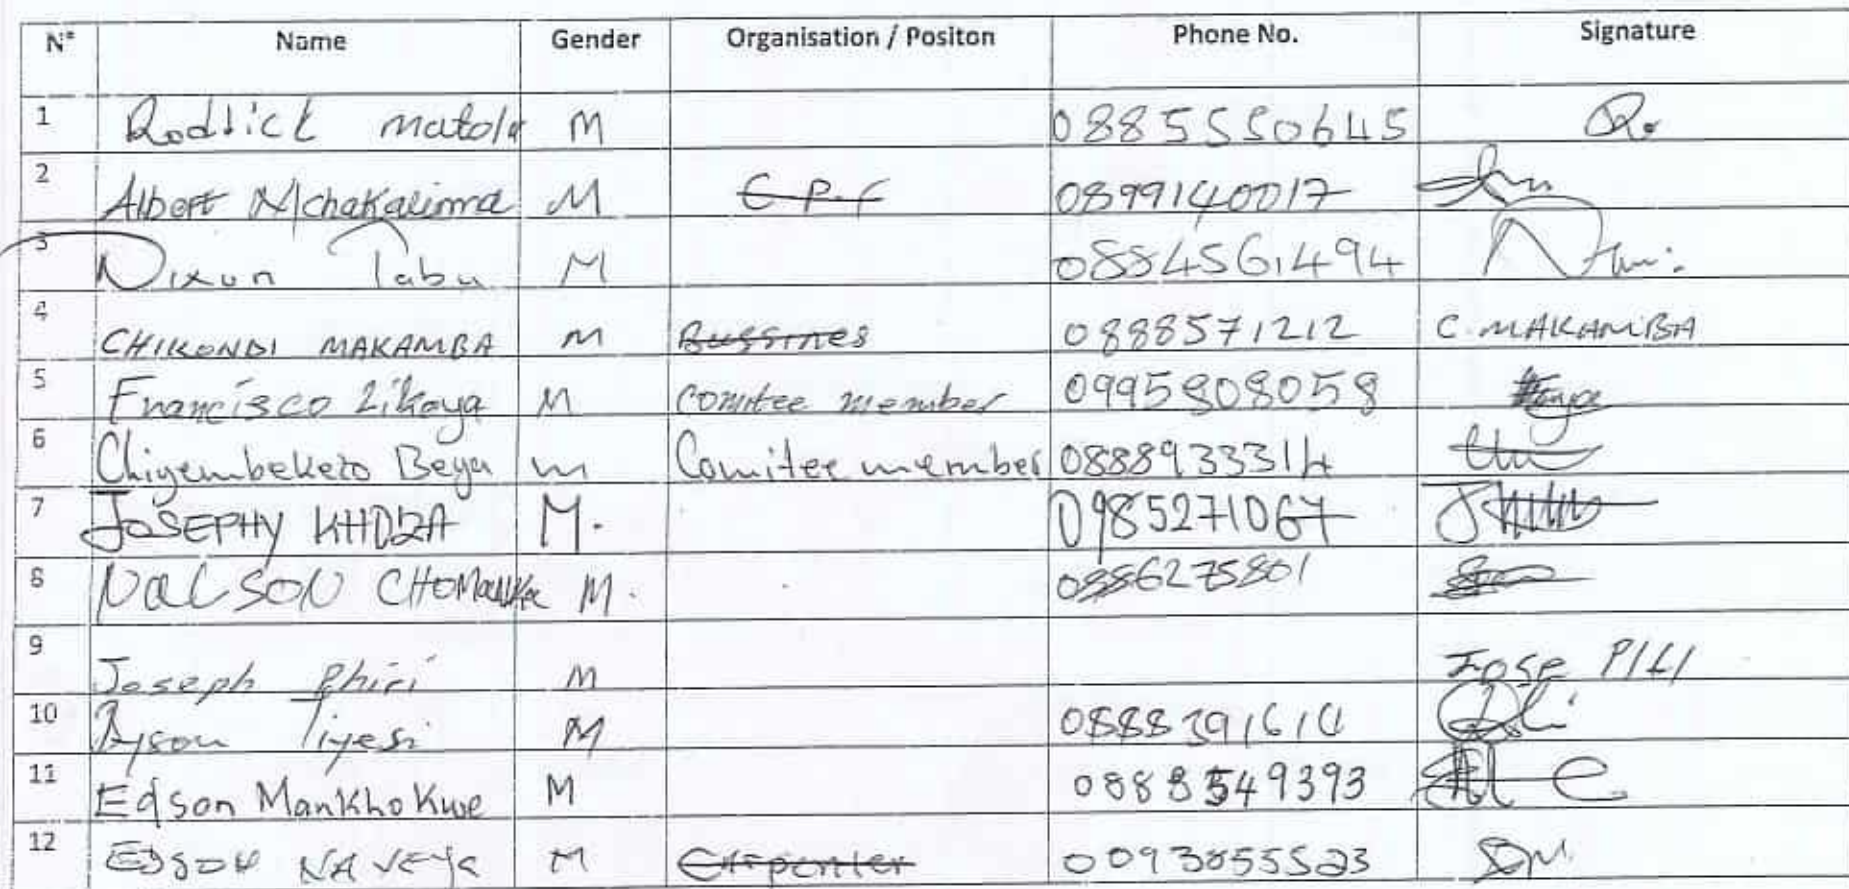 N° Name Gender Organisation / Positon Phone No. Signature
1 Roddick matola M 0885550645
2 Albert Mchakalima M C.P.F 0899140017
3 Dixon Tabu M 0884561494
4 CHIKONDI MAKAMBA M Bussines 0888571212 C. MAKAMBA
5 Francisco Likaya M Comitee member 0995808058
6 Chiyembekezo Beya m Comitee member 0888933314
7 JOSEPHY KHOZA M. 0985271067
8 M. 0886275801
9 Joseph Phiri M
10 M
11 Edson Mankhokwe M 0888549393
12 EDSON M Carpenter